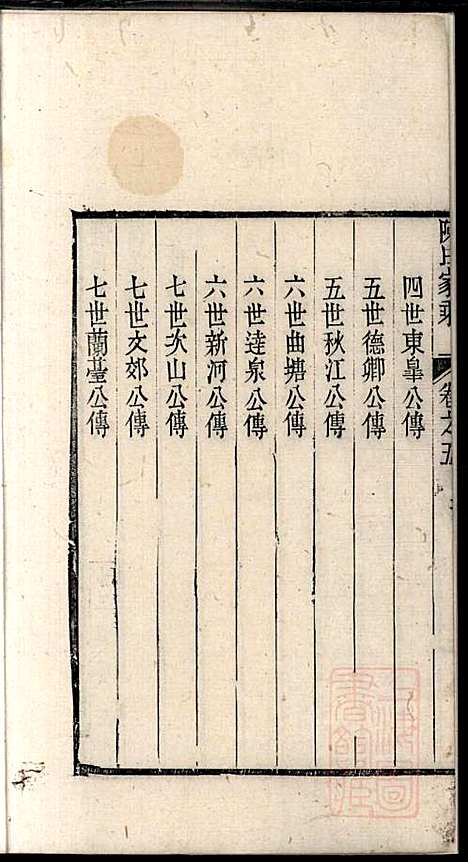 陳氏家乘
卷之五
四世東皐公傳
五世德卿公傳
五世秋江公傳
六世曲塘公傳
六世達泉公傳
六世新河公傳
七世次山公傳
七世文郊公傳
七世蘭臺公傳